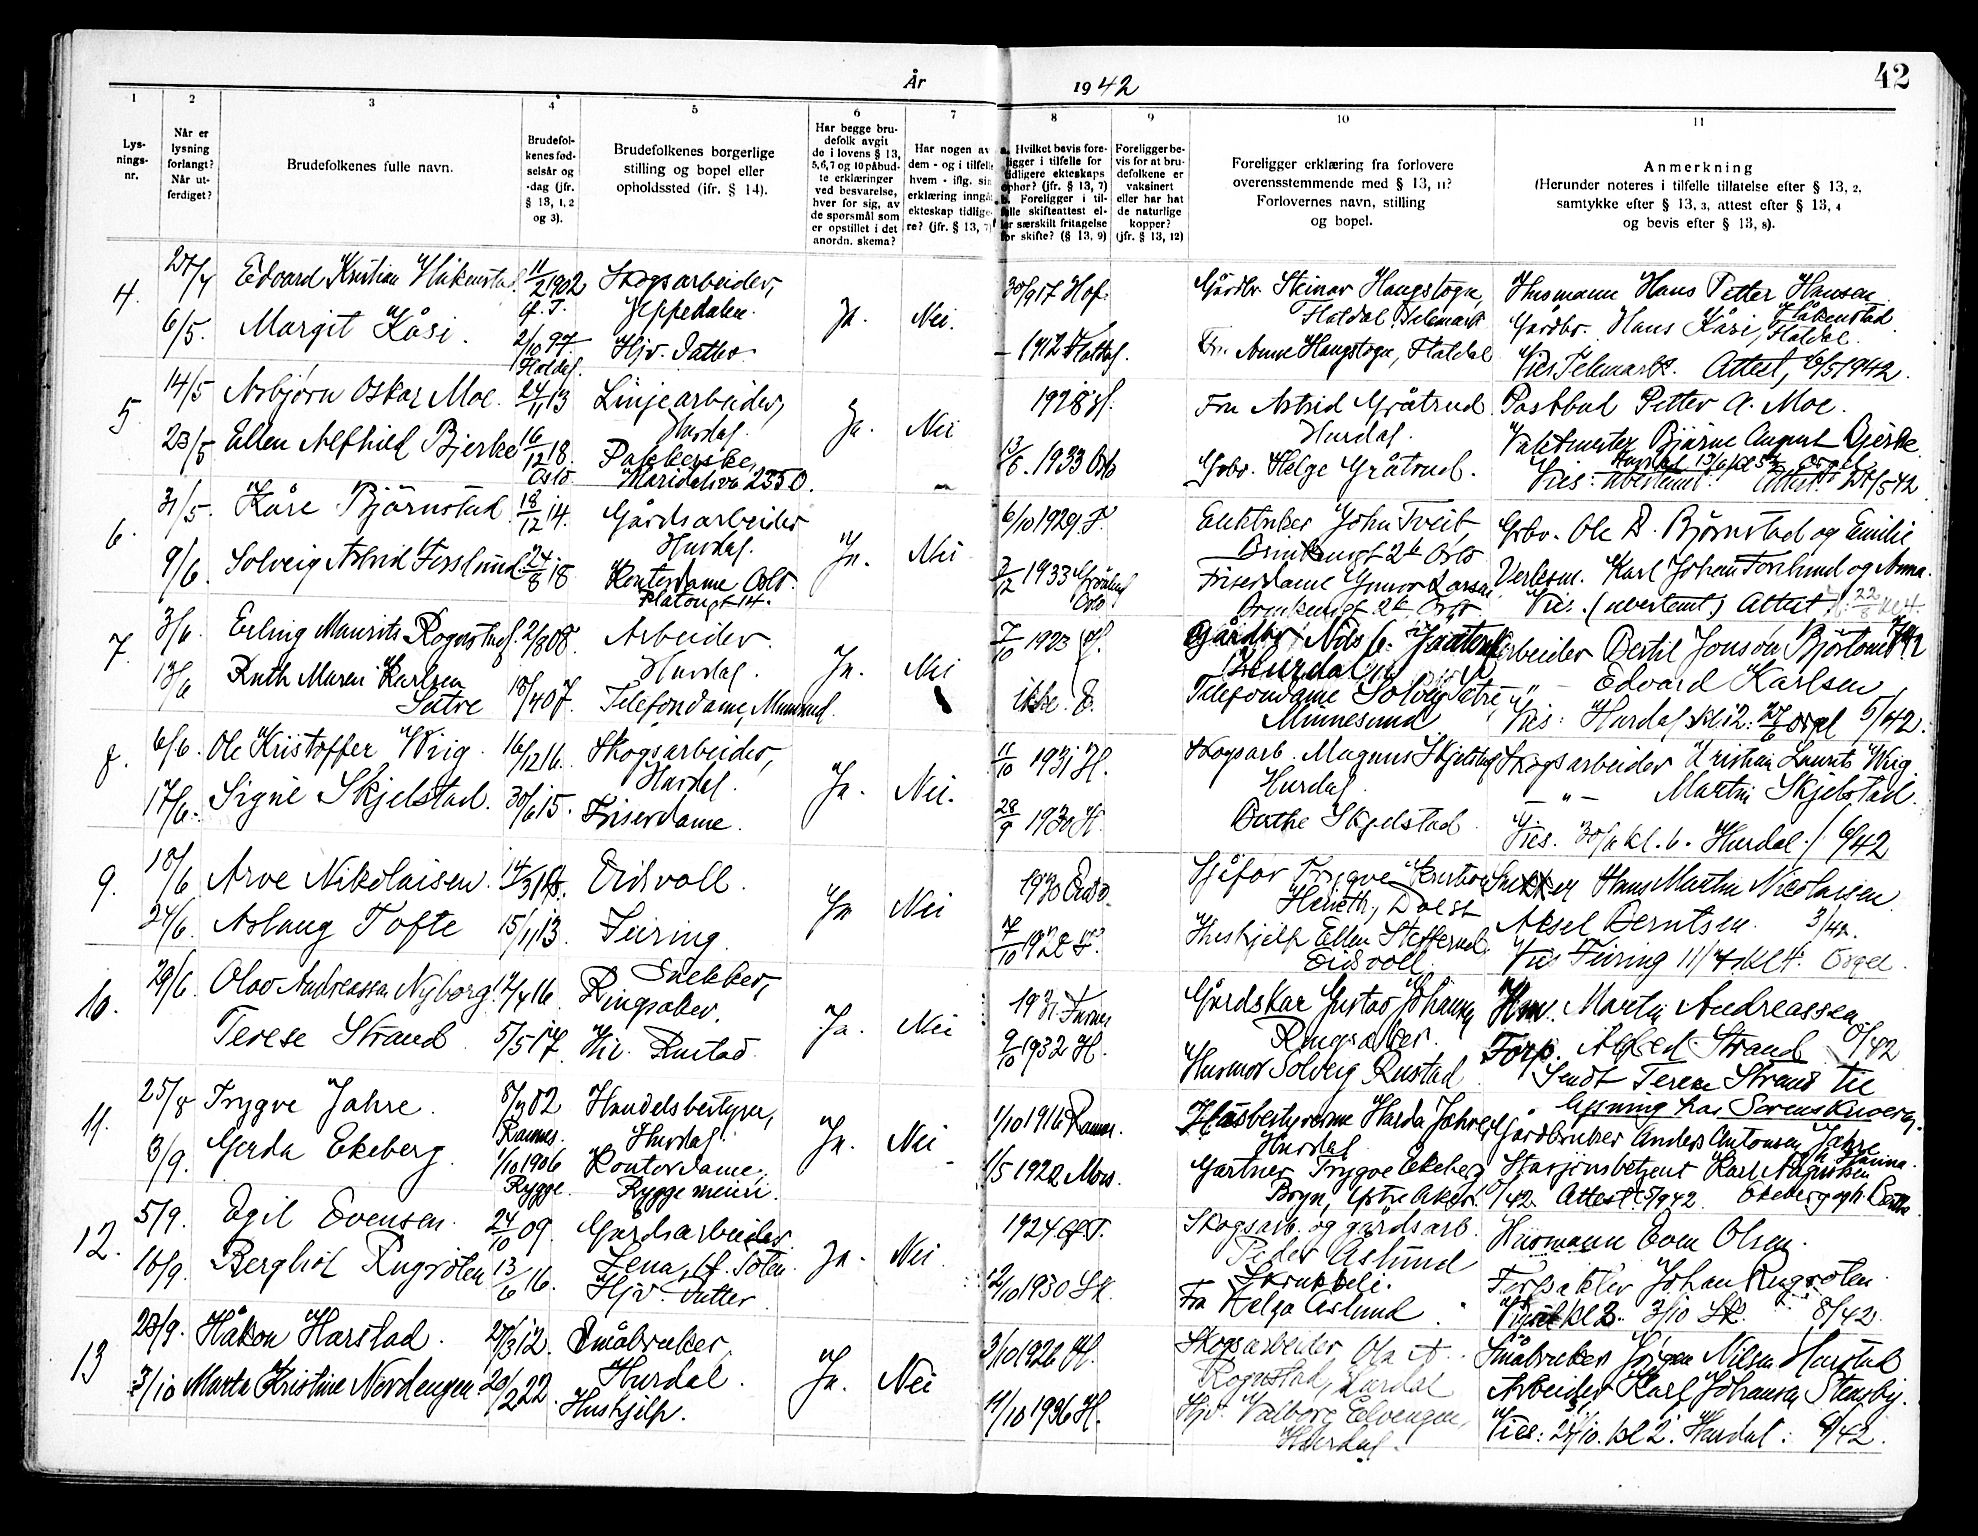 År 1942
42
1 2 3 4 5 6 7 8 9 10 11
Lys-
nings-
nr.
Når er
lysning
forlangt?
Når ut-
ferdiget?
Brudefolkenes fulle navn.
Brudefol-
kenes fød-
selsår og
-dag (jfr.
§ 13, 1, 2
og 3).
Brudefolkenes borgerlige
stilling og bopel eller
opholdssted (ifr. § 14).
Har begge bru-
defolk avgit
de i lovens § 13,
5,6,7 og 10 påbud-
te erklæringer
ved besvarelse,
hver for sig, av
de spørsmål som
er opstillet i det
anordn. skema?
Har nogen av
dem - og i tilfelle
hvem - iflg. sin
erklæring inngåt
ekteskap tidlige-
re? (jfr. § 13, 7)
a. Hvilket bevis fore-
ligger i tilfelle for
tidligere ekteskaps
ophør? (jfr. § 13, 7)
b. Foreligger i til-
felle skifteattest el-
ler særskilt fritagelse
for skifte? (§ 13, 9)
Foreligger be-
vis for at bru-
defolkene er
vaksinert
eller har hat
de naturlige
kopper?
(jfr. § 13, 12)
Foreligger erklæring fra forlovere
overensstemmende med § 13, 11?
Forlovernes navn, stilling
og bopel.
Anmerkning
(Herunder noteres i tilfelle tillatelse efter § 13, 2,
samtykke efter § 13, 3, attest efter § 13, 4
og bevis efter § 13, 8).
4 27/4 Edvard Kristian Håkenstad 11/2 1902 Skogsarbeider, Ja. Nei. 30/9 17 Hof. Gårdbr. Steinar Haugstogn, Husmann Hans Petter Hansen
Jeppedalen. Flatdal, Telemark Håkenstad.
6/5. Margit Kåsi. 2/10 97. Hjv. datter - 1912 Flatdal. Fru Anne Haugstogn, Flatdal Gårdbr. Hans Kåsi, Flatdal.
Flatdal. Vies Telemark. Attest, 6/5 1942.
5 14/5 Asbjørn Oskar Moe. 24/11 13 Linjearbeider, Ja. Nei 1928 H. Fru Astrid Gråtrud Postbud Petter A. Moe.
Hurdal. Hurdal.
23/5 Ellen Alfhild Bjerke 16/12 18. Pakkerske, 13/6. 1933 Oslo Gbr. Helge Gråtrud. Vaktmester Bjarne August Bjerke
Oslo. Maridalsvn 235 O. Vies: ubestemt. Attest
6. 31/5. Kåre Bjørnstad 18/12 14. Gårdsarbeider Ja. Nei 6/10 1929 F. John Tveit, Gbr. Ole Bjørnstad og Emilie
Hurdal. Oslo
9/6. Solveig Astrid Forslund. 24/8 18 Kontordame Oslo 2/12 1933 Oslo Friserdame Gunvor Larsen Karl Johan Forslund og Anna.
Platougt 14. Oslo Vies. (ubestemt) Attest
7 3/6 Erling Maurits Rognstad. 2/8 08. Arbeider Ja. Nei 7/10 1923 H. Gårdbr. Nils Arbeider Bertil Jonsen
Hurdal. Hurdal
13/6 Ruth Maren Karlsen 18/4 07. Telefondame, Minnesund. ikke. E. Telefondame Solveig Sætre, — " — Edvard Karlsen
Sætre Minnesund Vies: Hurdal kl 12: 27/6 orgel 5/42.
8. 6/6. Ole Kristoffer Wiig. 16/12 16. Skogsarbeider, Ja. Nei. 11/10 1931 H. Skogsarb. Magnus Skjelstad Skogsarbeider Kristian Laurits Wiig
Hurdal. Hurdal
17/6. Signe Skjelstad. 30/6 15. Friserdame. 28/9 1930 H. Berthe Skjelstad — " — Martin Skjelstad.
Vies. 30/6 kl. 6. Hurdal / 6/42
9. 18/6 Arve Nikolaisen. 14/3 18. Eidsvoll. Ja Nei 1930 Eidsv. Sjåfør Trygve Snekker Hans Martin Nicolaisen
24/6. Aslaug Tofte 15/11 13. Feiring. 7/10 1928 F. Hushjelp Ellen Steffensrud Aksel Berntsen. 3/42.
Eidsvoll Vies Feiring 11/7 kl 4. Orgel.
10. 29/6 Olav Andreassen Nyborg. 12/4 16. Snekker, Ja. Nei 1931 Furnes Gårdskar Gustav Johansen Hm. Martin Andreassen
Ringsaker. Ringsaker.
Terese Strand 5/5 17. Hv. Rustad. 9/10 1932 H. Husmor Solveig Rustad Forp. Alfred Strand 8/42
Sendt Terese Strand til
lysning hos Sorenskriveren.
11. 25/8 Trygve Jahre. 8/7 02 Handelsbestyrer, Ja. Nei 1/10 1916 Ramnes. Husbestyrerinne Harda Jahre, Gårdbruker Anders Antonsen Jahre
Ramnes. Hurdal. Hurdal
3/9. Gerda Ekeberg 1/10 1906 Kontordame, 1/5 1922 Moss. Gartner Trygve Ekeberg Stasjonsbetjent Karl Augustsen
Rygge. Rygge meieri. Bryn, Østre Aker. 8/42 Attest 5/9 42. Ekeberg
12. 5/9. Egil Evensen. 24/10 09. Gårdsarbeider Ja. Nei 1924 Ø.T. Skogsarb. og gårdsarb. Husmann Even Olsen.
Lena, Ø. Toten. Peder Aslund
16/9. Bergliot Rugsølen 13/6 16. Hjv. datter 12/10 1930 Sk. Skrukkeli. Forpakter Johan Rugsølen.
Fru Helga Aslund kl 3. 3/10 Sk. 8/42.
13 23/9. Håkon Harstad. 27/3 12. Småbruker, Ja. Nei 3/10 1926 H. Skogsarbeider Ola A. Småbruker Jørgen Nilsen Harstad
Hurdal. Rognstad, Hurdal
3/10 Marta Kristine Nordengen 20/2 22. Hushjelp. 11/10 1936 H. Hjv. Valborg Elvengen, Arbeider Karl Johansen Stensby.
Hurdal. Vies: 24/10. kl 2. Hurdal: 9/42.